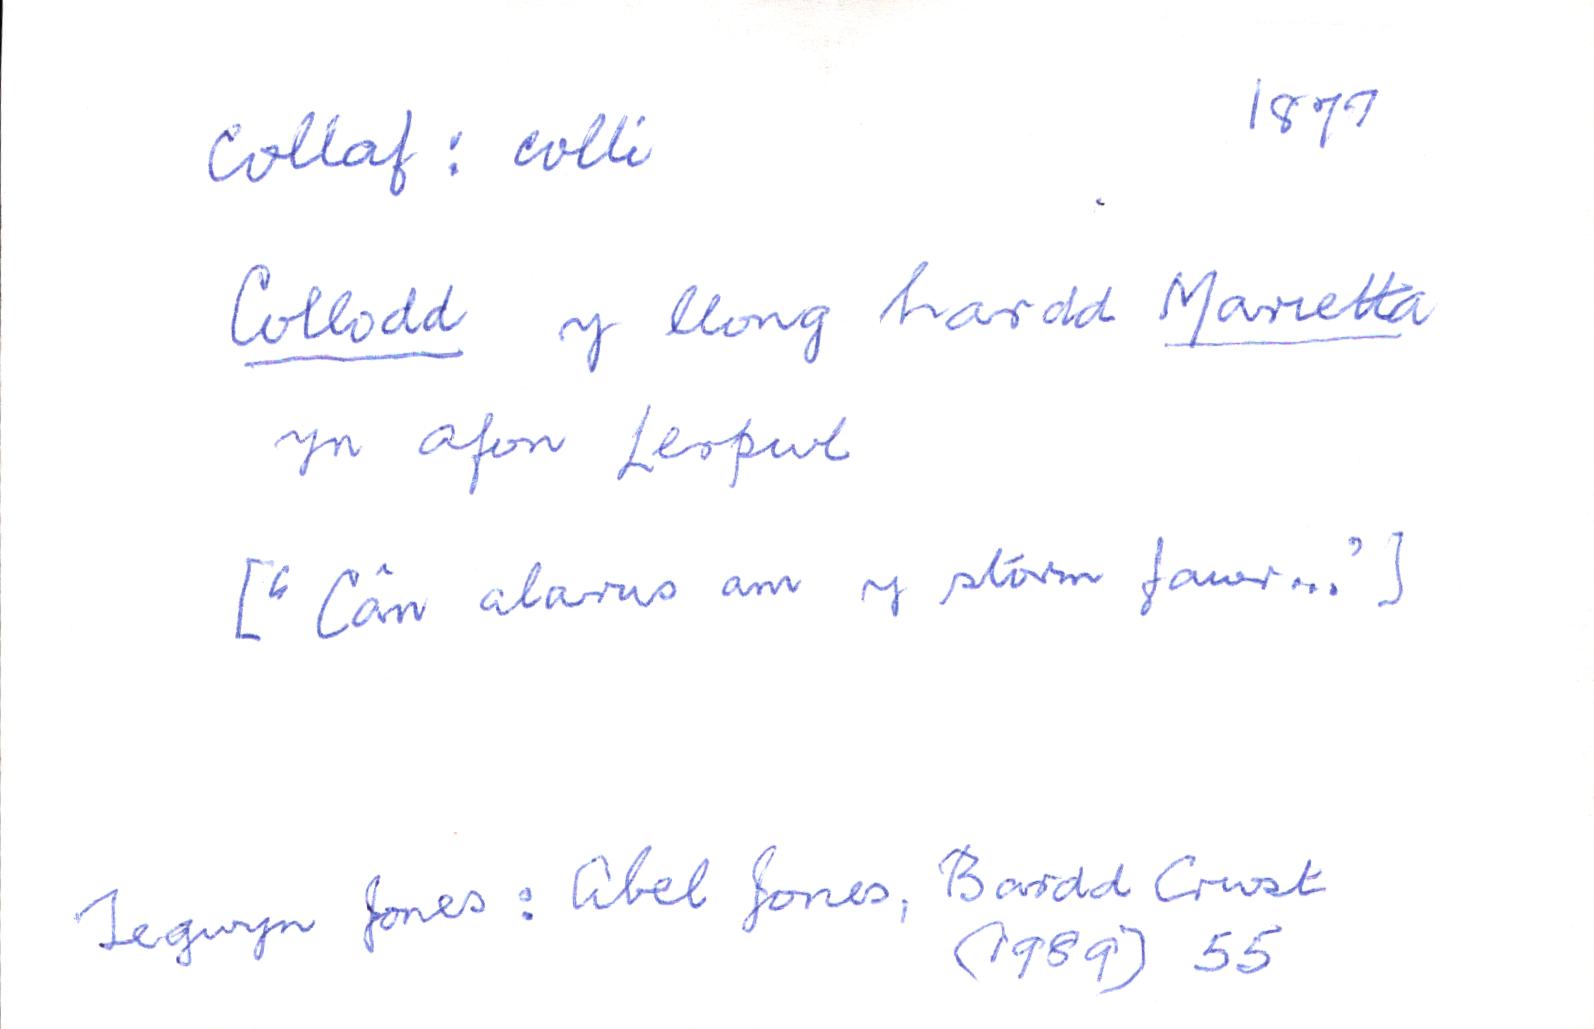 Collaf : colli 1877
Collodd y llong hardd Marietta
yn afon Lerpwl
["Cân alarus am y storm fawr...']
Tegwyn Jones : Abel Jones, Bardd Crwst
(1989) 55